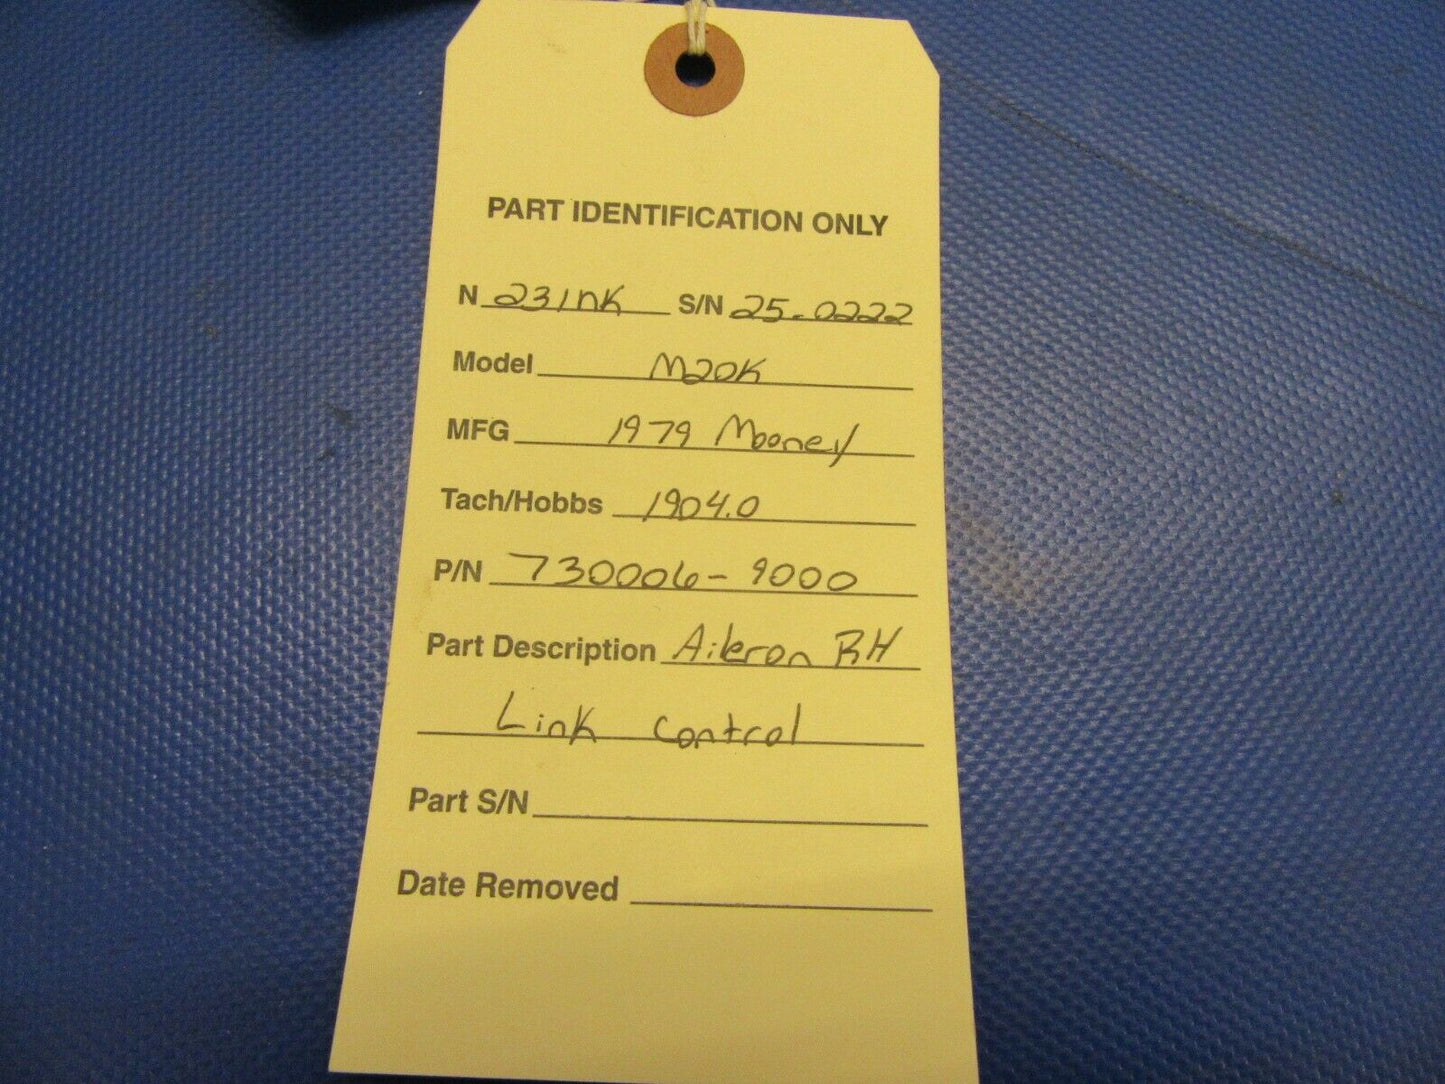 PART IDENTIFICATION ONLY
N 231NK S/N 25-0222
Model M20K
MFG 1979 Mooney
Tach/Hobbs 1904.0
P/N 730006-9000
Part Description Aileron RH
Link Control
Part S/N
Date Removed